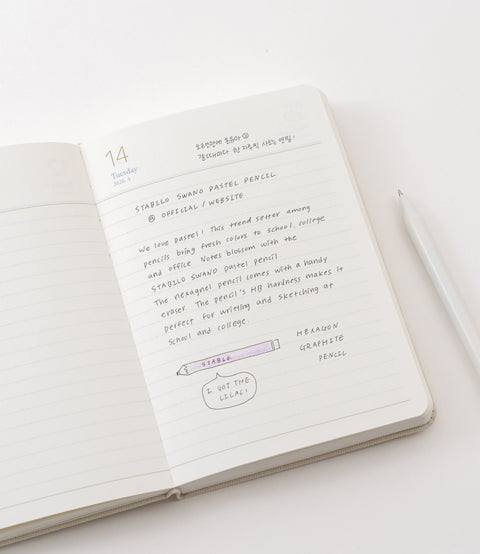 14
Tuesday
2026. 4
오랜만에 돈규아
갈 때마다 한 자루씩 사오는 연필!
STABILO SWANO PASTEL PENCIL
@ OFFICIAL / WEBSITE
We love pastel! This trend setter among
pencils bring fresh colors to school, college
and office Notes blossom with the
STABILO SWANO pastel pencil
The hexagnel pencil comes with a handy
eraser. The pencil's HB hardness makes it
perfect for writting and sketching at
school and college.
STABLO
I GOT THE
LILAC!
HEXAGON
GRAPHITE
PENCIL